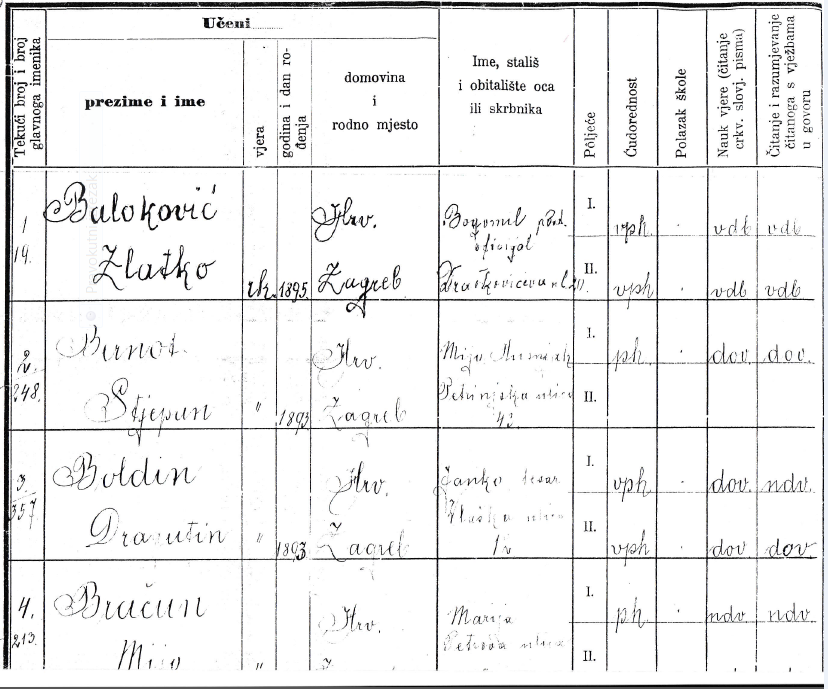 Učeni
Tekući broj i broj glavnoga imenika
prezime i ime
vjera
godina i dan ro-
đenja
domovina
i
rodno mjesto
Ime, stališ
i obitalište oca
ili skrbnika
Póljeće
Ćudorednost
Polazak škole
Nauk vjere (čitanje
crkv. slovj. pisma)
Čitanje i razumjevanje
čitanoga s vježbama
u govoru
1 Baloković Hrv. Bogomil I. vph vdb vdb
19. Zlatko rk. 1895. Zagreb II. vph vdb vdb
2. Hrv. Mijo I. ph dov. dov.
248. Stjepan " 1893 Zagreb Petrinjska ulica II.
42.
3 Boldin Hrv. Janko tesar I. vph dov. ndv.
357 Dragutin " 1893 Zagreb Vlaška ulica II. vph dov dov
12
4. Bračun Hrv. Marija I. ph ndv ndv
213. Mijo " Petrova ulica II.